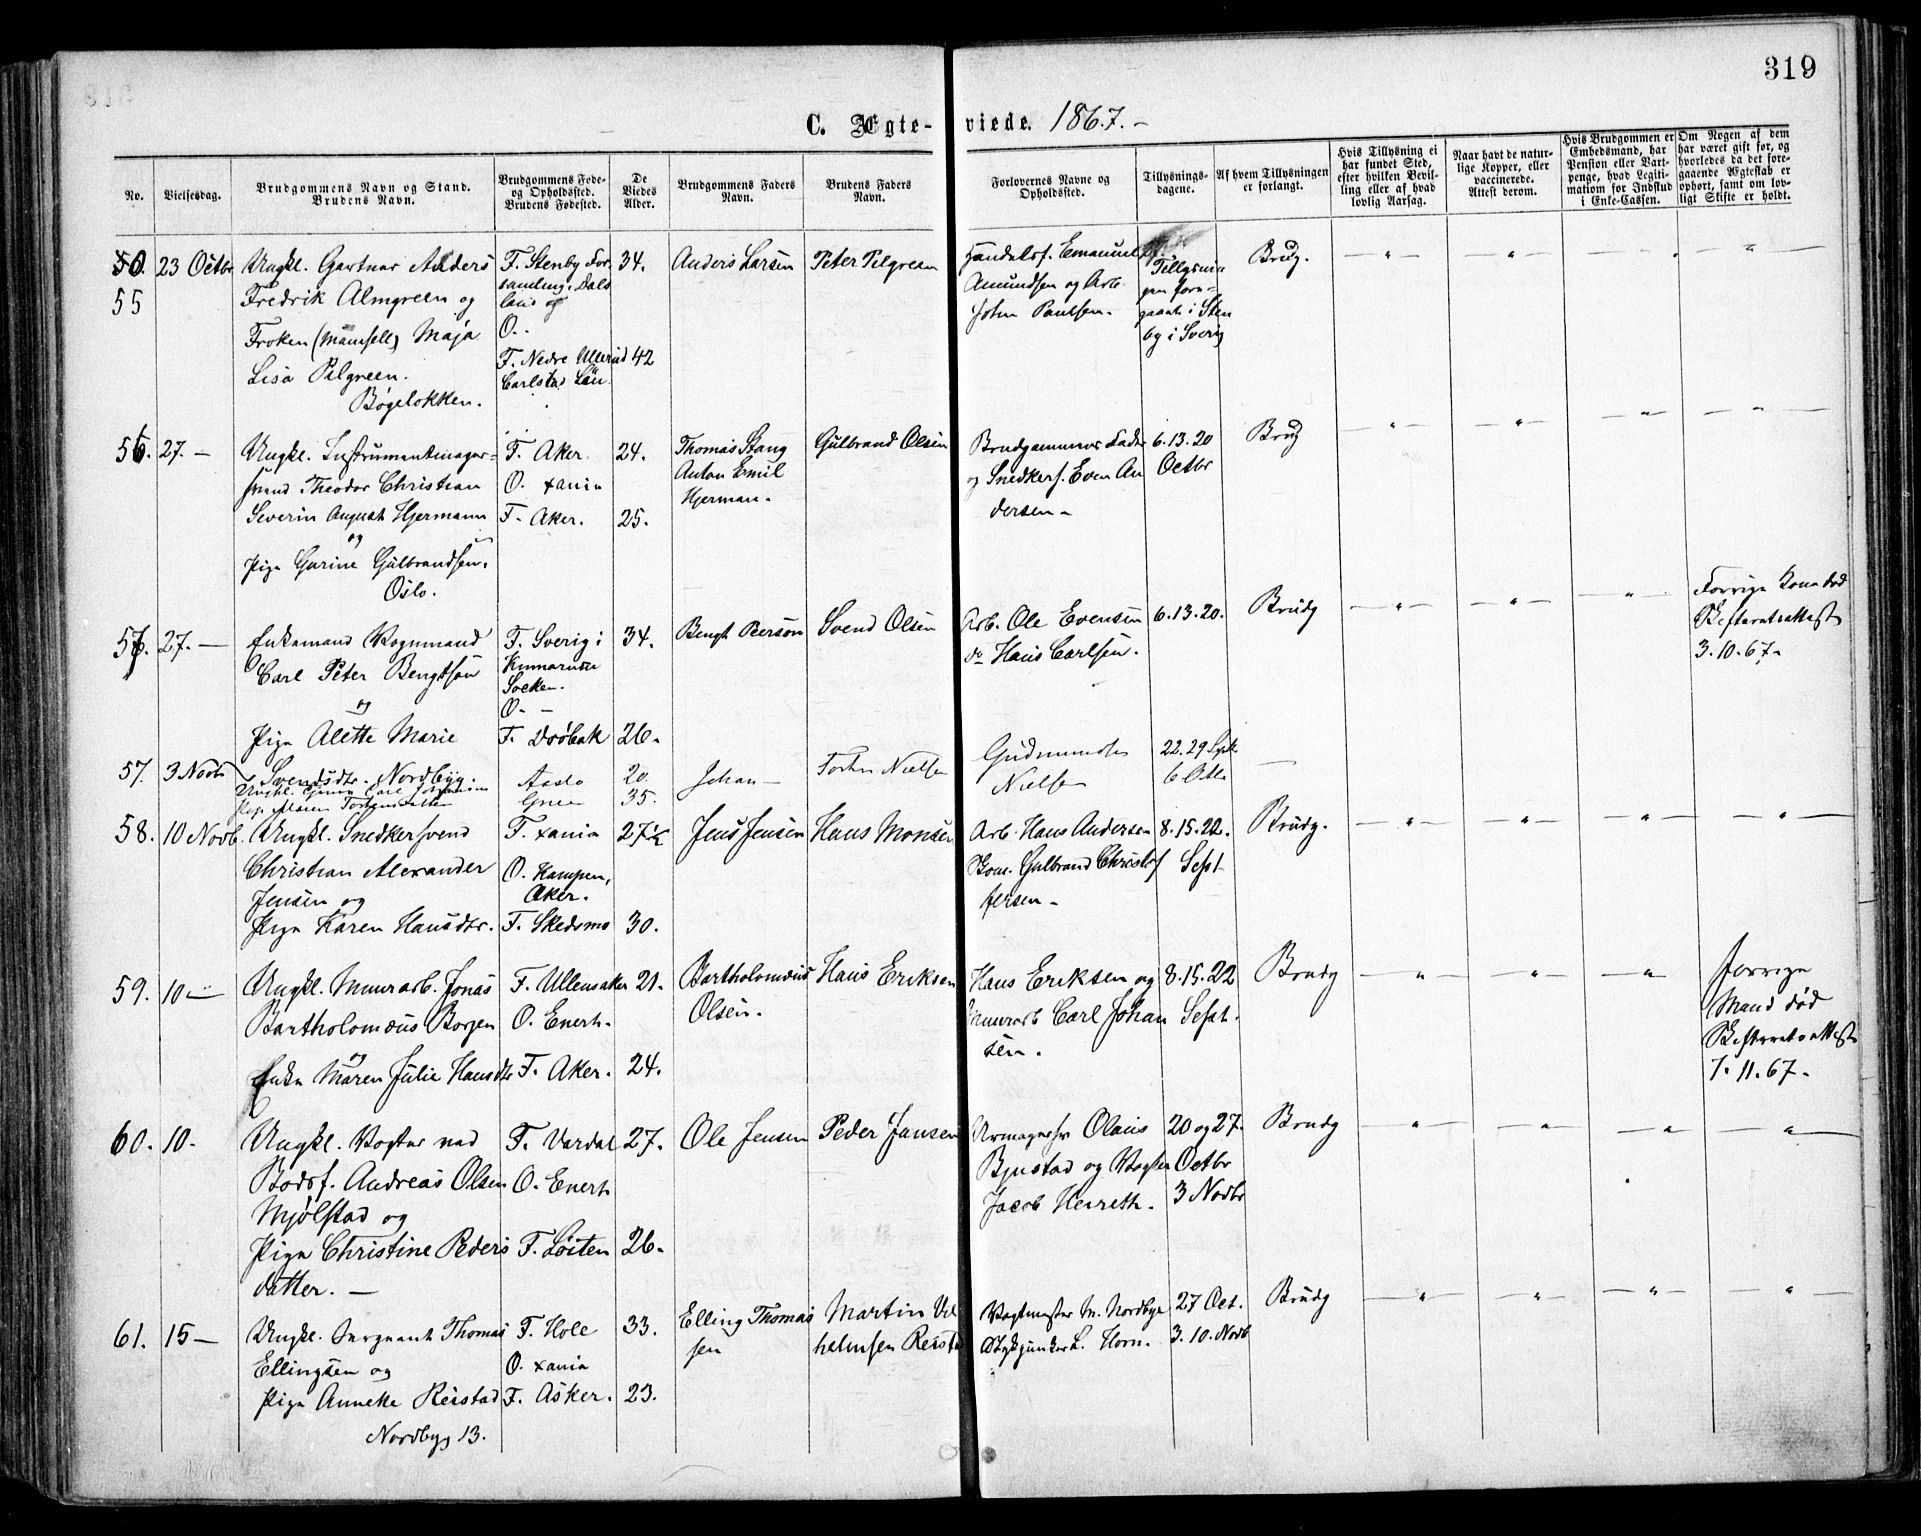 319
C. Ægte-viede. 1867.-
No.
Vielsesdag.
Brudgommens Navn og Stand.
Brudens Navn.
Brudgommens Føde-
og Opholdssted.
Brudens Fødested.
De
Viedes
Alder.
Brudgommens Faders
Navn.
Brudens Faders
Navn.
Forlovernes Navne og
Opholdssted.
Tillysnings-
dagene.
Af hvem Tillysningen
er forlangt.
Hvis Tillysning ei
har fundet Sted,
efter hvilken Bevil-
ling eller af hvad
lovlig Aarsag.
Naar havt de natur-
lige Kopper, eller
vaccinerede.
Attest derom.
Hvis Brudgommen er
Embedsmand, har
Pension eller Vart-
penge, hvad Legiti-
mation for Indskud
i Enke-Cassen.
Om Nogen af dem
har været gift før, og
hvorledes da det fore-
gaaende Ægteskab er
ophørt, samt om lov-
ligt Skifte er holdt.
55
23 Octbr
Ungkl. Gartner Anders
Fredrik Almgreen og
Frøken (Mamsell) Maja
Lisa Pilgreen.
Bøgeløkken.
F. Stenby For-
samling. Dals
land og
O. -
F. Nedre Ullerud
Carlstad Län.
34.
42
Anders Larsen
Peter Pilgreen
Handelsf. Emanuel
Amundsen og Arb.
John Paulsen.
Tillysnin
gen fore-
gaaet i Sten
by i Sverig
Brudg.
56. 27. -
Ungkl. Instrumentmager-
svend Theodor Christian
Severin August Hjermann
og
Pige Gurine Gulbrandsen.
Oslo.
F. Aker.
O. Xania
F. Aker.
24.
25.
Thomas Stang
Anton Emil
Hjerman.
Gulbrand Olsen
Brudgommens Fader
og Snedkers. Even An
dersen -
6.13.20
Octbr
Brudg
57. 27. -
Enkemand Vognmand
Carl Peter Bengtson
og
Pige Alette Marie
Svendsdtr. Nordbyg.
F. Sverig i
Socken.
O. -
F. Drøbak
34.
26.
Bengt Peerson
Svend Olsen
Arb. Ole Evensen
do Hans Carlsen.
6.13.20.
Brudg
Forrige Kone død
Skifteretsattest
3.10.67.
57. 3 Novb
Ungkl. Carl
Pige Maren
20.
35.
Johan -
Torsten Nielsen
Gudmund
Nielsen
22.29 Sept
6 Oct.
58. 10 Novb.
Ungkl. Snedkersvend
Christian Alexander
Jensen og
Pige Karen Hansdtr.
F. Xania
O. Kampen,
Aker.
F. Skedsmo
27½
30.
Jens Jensen
Hans Monsen
Arb. Hans Andersen
Kom. Gulbrand Christof
fersen -
8.15.22.
Sept
Brudg.
59. 10 -
Ungkl. Murarb. Jonas
Bartholomæus Borgen
og
Enke Maren Julie Hansdtr
F. Ullensaker
O. Enerh.
F. Aker.
21.
24.
Bartholomæus
Olsen.
Hans Eriksen
Hans Eriksen og
Murarb Carl Johan
sen.
8.15.22
Sept.
Brudg
forrige
Mand død
Skifteretsattest
7.11.67.
60. 10-
Ungkl. Vogter ved
Bodsf. Andreas Olsen
Mjølstad og
Pige Christine Peders
datter. -
F. Vardal
O. Enerh
F. Løiten
27.
26.
Ole Jensen
Peder Jansen
Urmagersv Olaus
Bjustad og Vogter
Jacob Henreth.
20 og 27.
Octbr
3 Novbr
Brudg
61. 15 -
Ungkl. Sergeant Thomas
Ellingsen og
Pige Anneke Reistad
Nordbyg 13.
F. Hole
O. Xania
F. Asker.
33.
23.
Elling Thomas
sen
Martin Vil
helmsen Reistad
Vagtmester M. Nordbye
Stykjunker L. Horn.
27 Oct.
3.10. Novb
Brudg